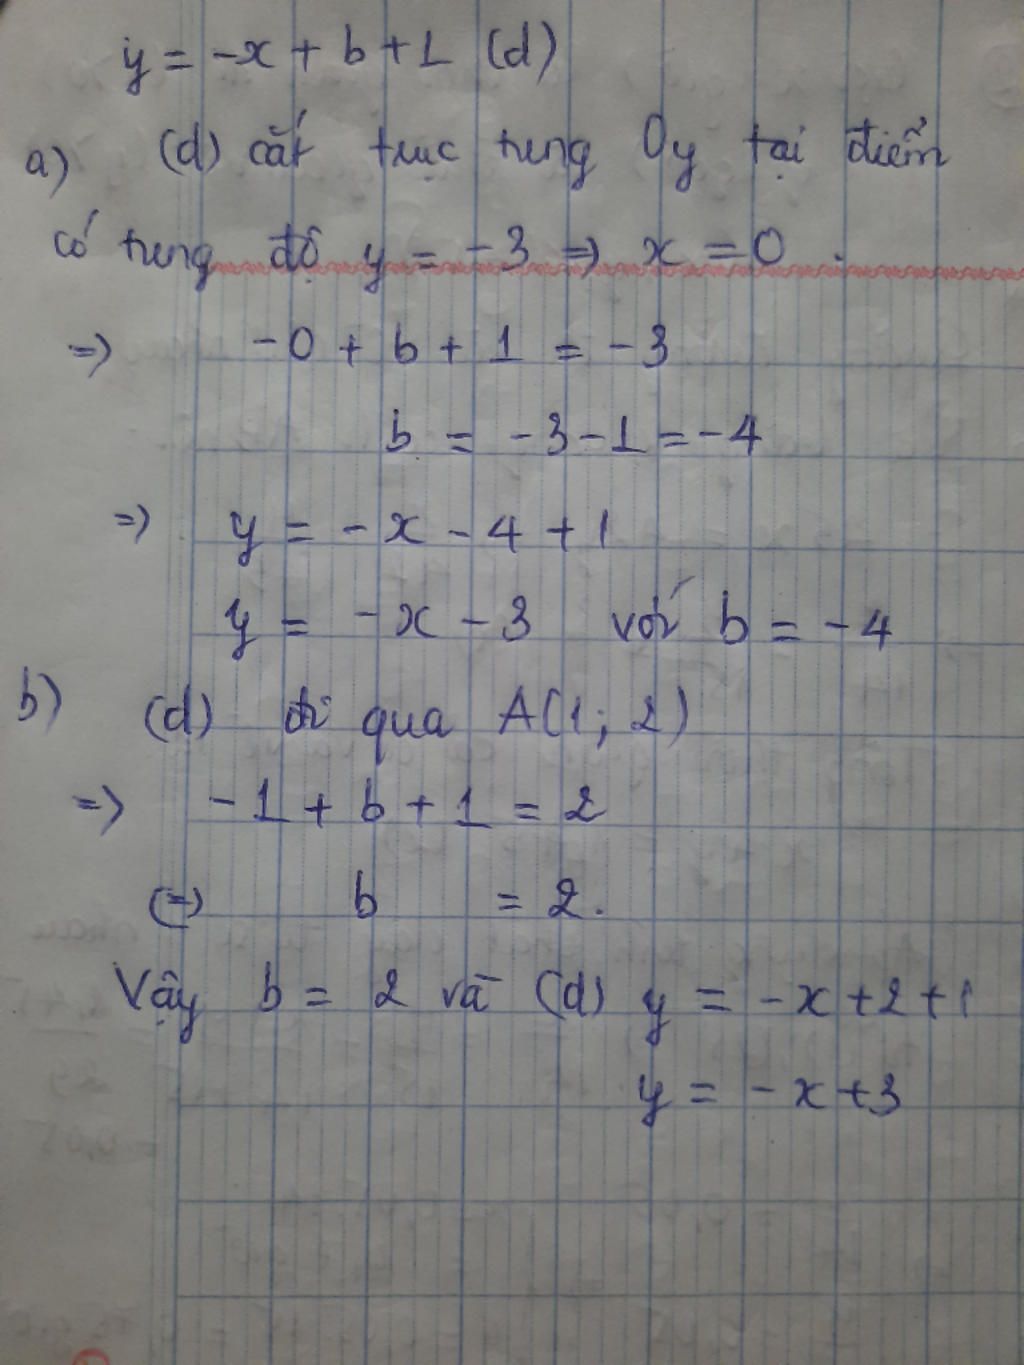 y = -x + b + 1 (d)
a) (d) cắt trục tung Oy tại điểm
có tung độ y = -3 => x = 0 .
=> -0 + b + 1 = -3
b = -3 - 1 = -4
=> y = -x - 4 + 1
y = -x - 3 với b = -4
b) (d) đi qua A(1; 2)
=> -1 + b + 1 = 2
(=) b = 2.
Vậy b = 2 và (d) y = -x + 2 + 1
y = -x + 3